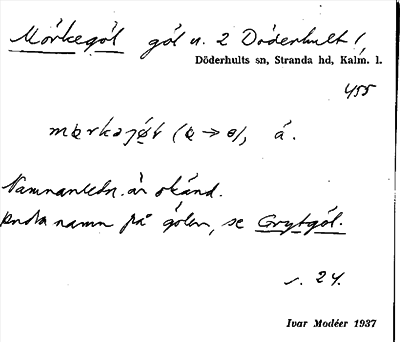 Mörkegöl göl n. 2 Döderhult /
Döderhults sn, Stranda hd, Kalm. l.
455
Namnanledn. är okänd.
Andra namn på gölen, se Grytgöl.
s. 24.
Ivar Modéer 1937